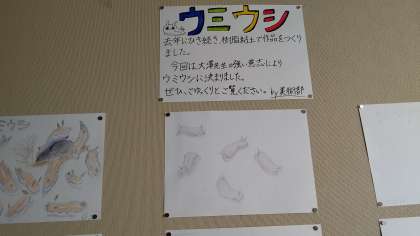 ウミウシ
去年にひき続き、樹脂粘土で作品をつくり
ました。
今回は大澤先生の強い意志により
ウミウシに決まりました。
ぜひ、ごゆっくりとご覧ください。by美術部
ウミウシ